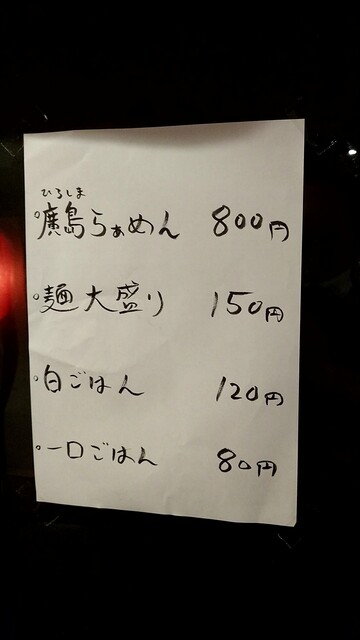 ひろしま
°廣島らぁめん 800円
°麺大盛り 150円
°白ごはん 120円
°一口ごはん 80円